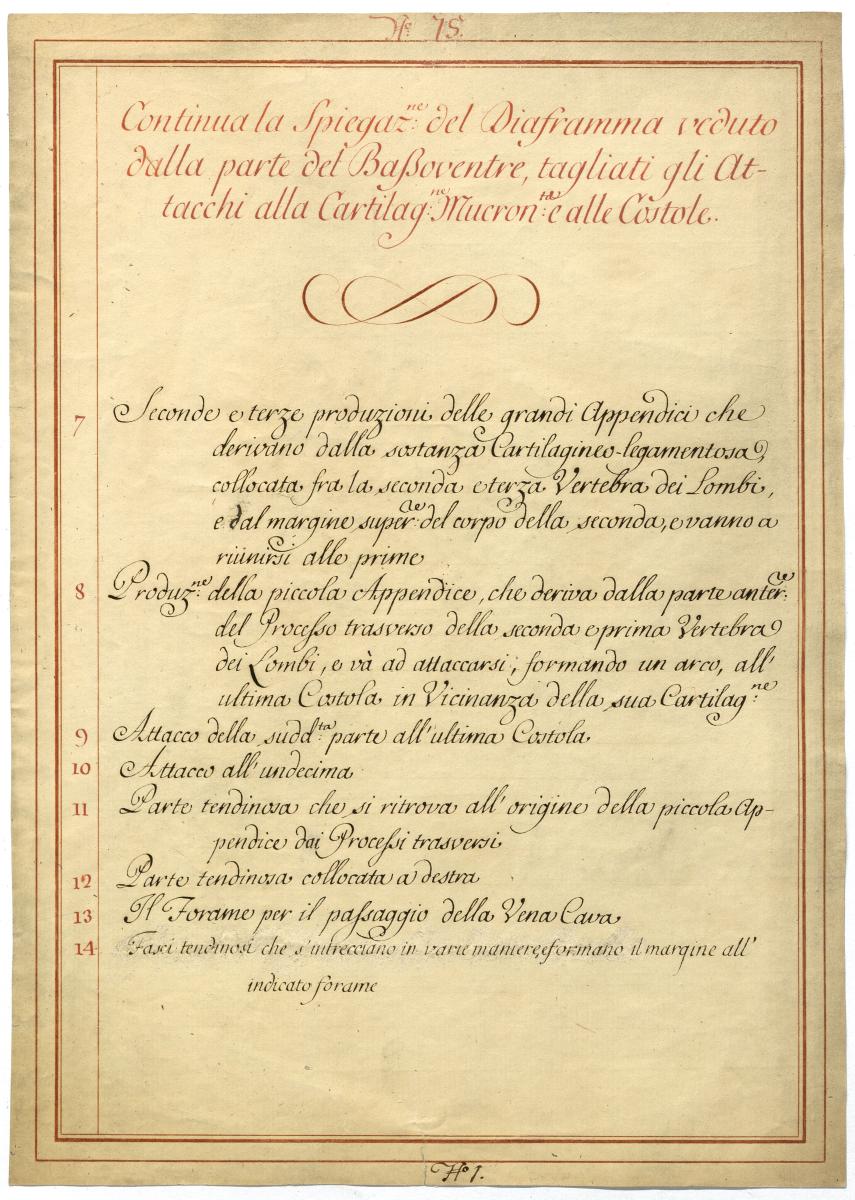 N.º 75.
Continua la Spiegaz:ⁿᵉ del Diaframma veduto
dalla parte del Baßoventre, tagliati gli At-
tacchi alla Cartilag:ⁿᵉ Mucron:ᵗᵃ e alle Costole.
7 Seconde e terze produzioni delle grandi Appendici che
derivano dalla sostanza Cartilagineo-legamentosa,
collocata fra la seconda e terza Vertebra dei Lombi,
e dal margine super:ʳᵉ del corpo della seconda, e vanno a
riunirsi alle prime
8 Produz:ⁿᵉ della piccola Appendice, che deriva dalla parte anter:ʳᵉ
del Processo trasverso della seconda e prima Vertebra
dei Lombi, e và ad attaccarsi, formando un arco, all'
ultima Costola in Vicinanza della sua Cartilag:ⁿᵉ
9 Attacco della sudd:ᵗᵃ parte all'ultima Costola
10 Attacco all'undecima
11 Parte tendinosa che si ritrova all'origine della piccola Ap-
pendice dai Processi trasversi
12 Parte tendinosa collocata a destra
13 Il Forame per il passaggio della Vena Cava
14 Fasci tendinosi che s'intrecciano in varie maniere, e formano il margine all'
indicato forame
N.º 1.